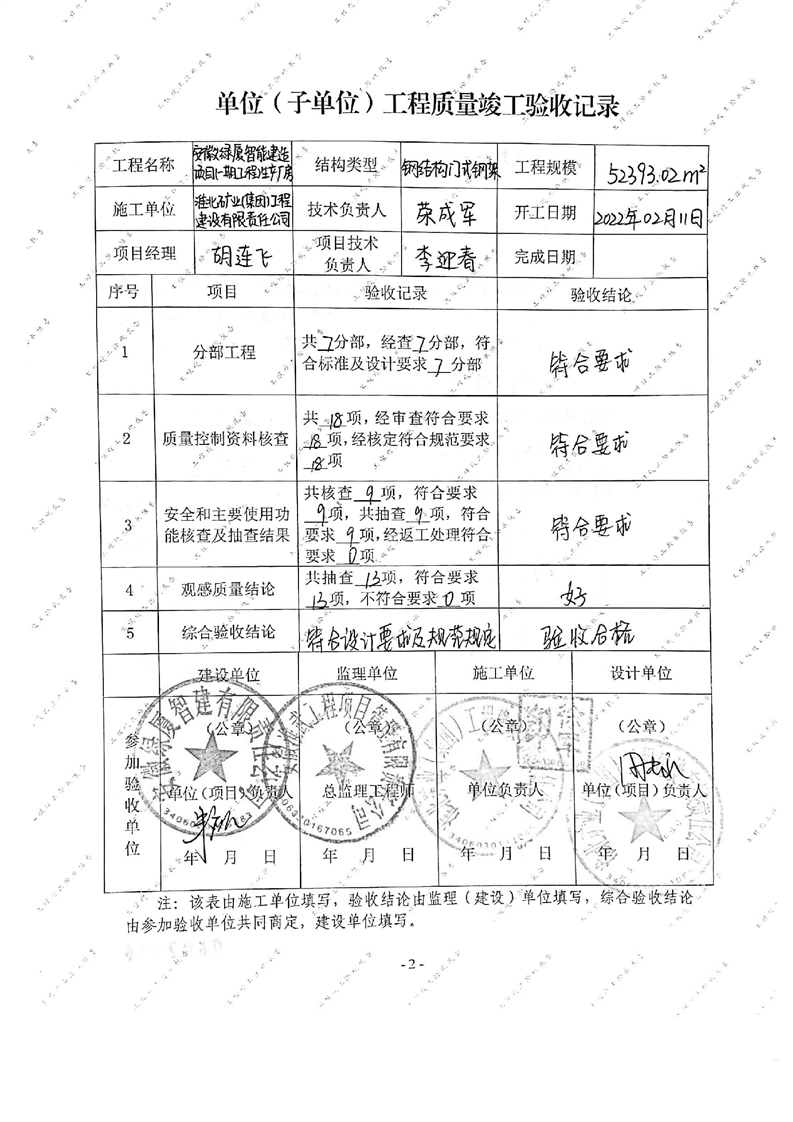 单位（子单位）工程质量竣工验收记录
工程名称 安徽绿厦智能建造项目(一期工程)生产厂房 结构类型 钢结构门式钢架 工程规模 52393.02m²
施工单位 淮北矿业(集团)工程建设有限责任公司 技术负责人 荣成军 开工日期 2022年02月11日
项目经理 胡连飞 项目技术负责人 李迎春 完成日期
序号 项目 验收记录 验收结论
1 分部工程 共7分部，经查7分部，符合标准及设计要求7分部 符合要求
2 质量控制资料核查 共18项，经审查符合要求18项，经核定符合规范要求18项 符合要求
3 安全和主要使用功能核查及抽查结果 共核查9项，符合要求9项，共抽查9项，符合要求9项，经返工处理符合要求0项 符合要求
4 观感质量结论 共抽查13项，符合要求13项，不符合要求0项 好
5 综合验收结论 符合设计要求及规范规定 验收合格
参加验收单位
建设单位 监理单位 施工单位 设计单位
（公章） （公章） （公章） （公章）
单位（项目）负责人 总监理工程师 单位负责人 单位（项目）负责人
年 月 日 年 月 日 年 月 日 年 月 日
注：该表由施工单位填写，验收结论由监理（建设）单位填写，综合验收结论
由参加验收单位共同商定，建设单位填写。
-2-